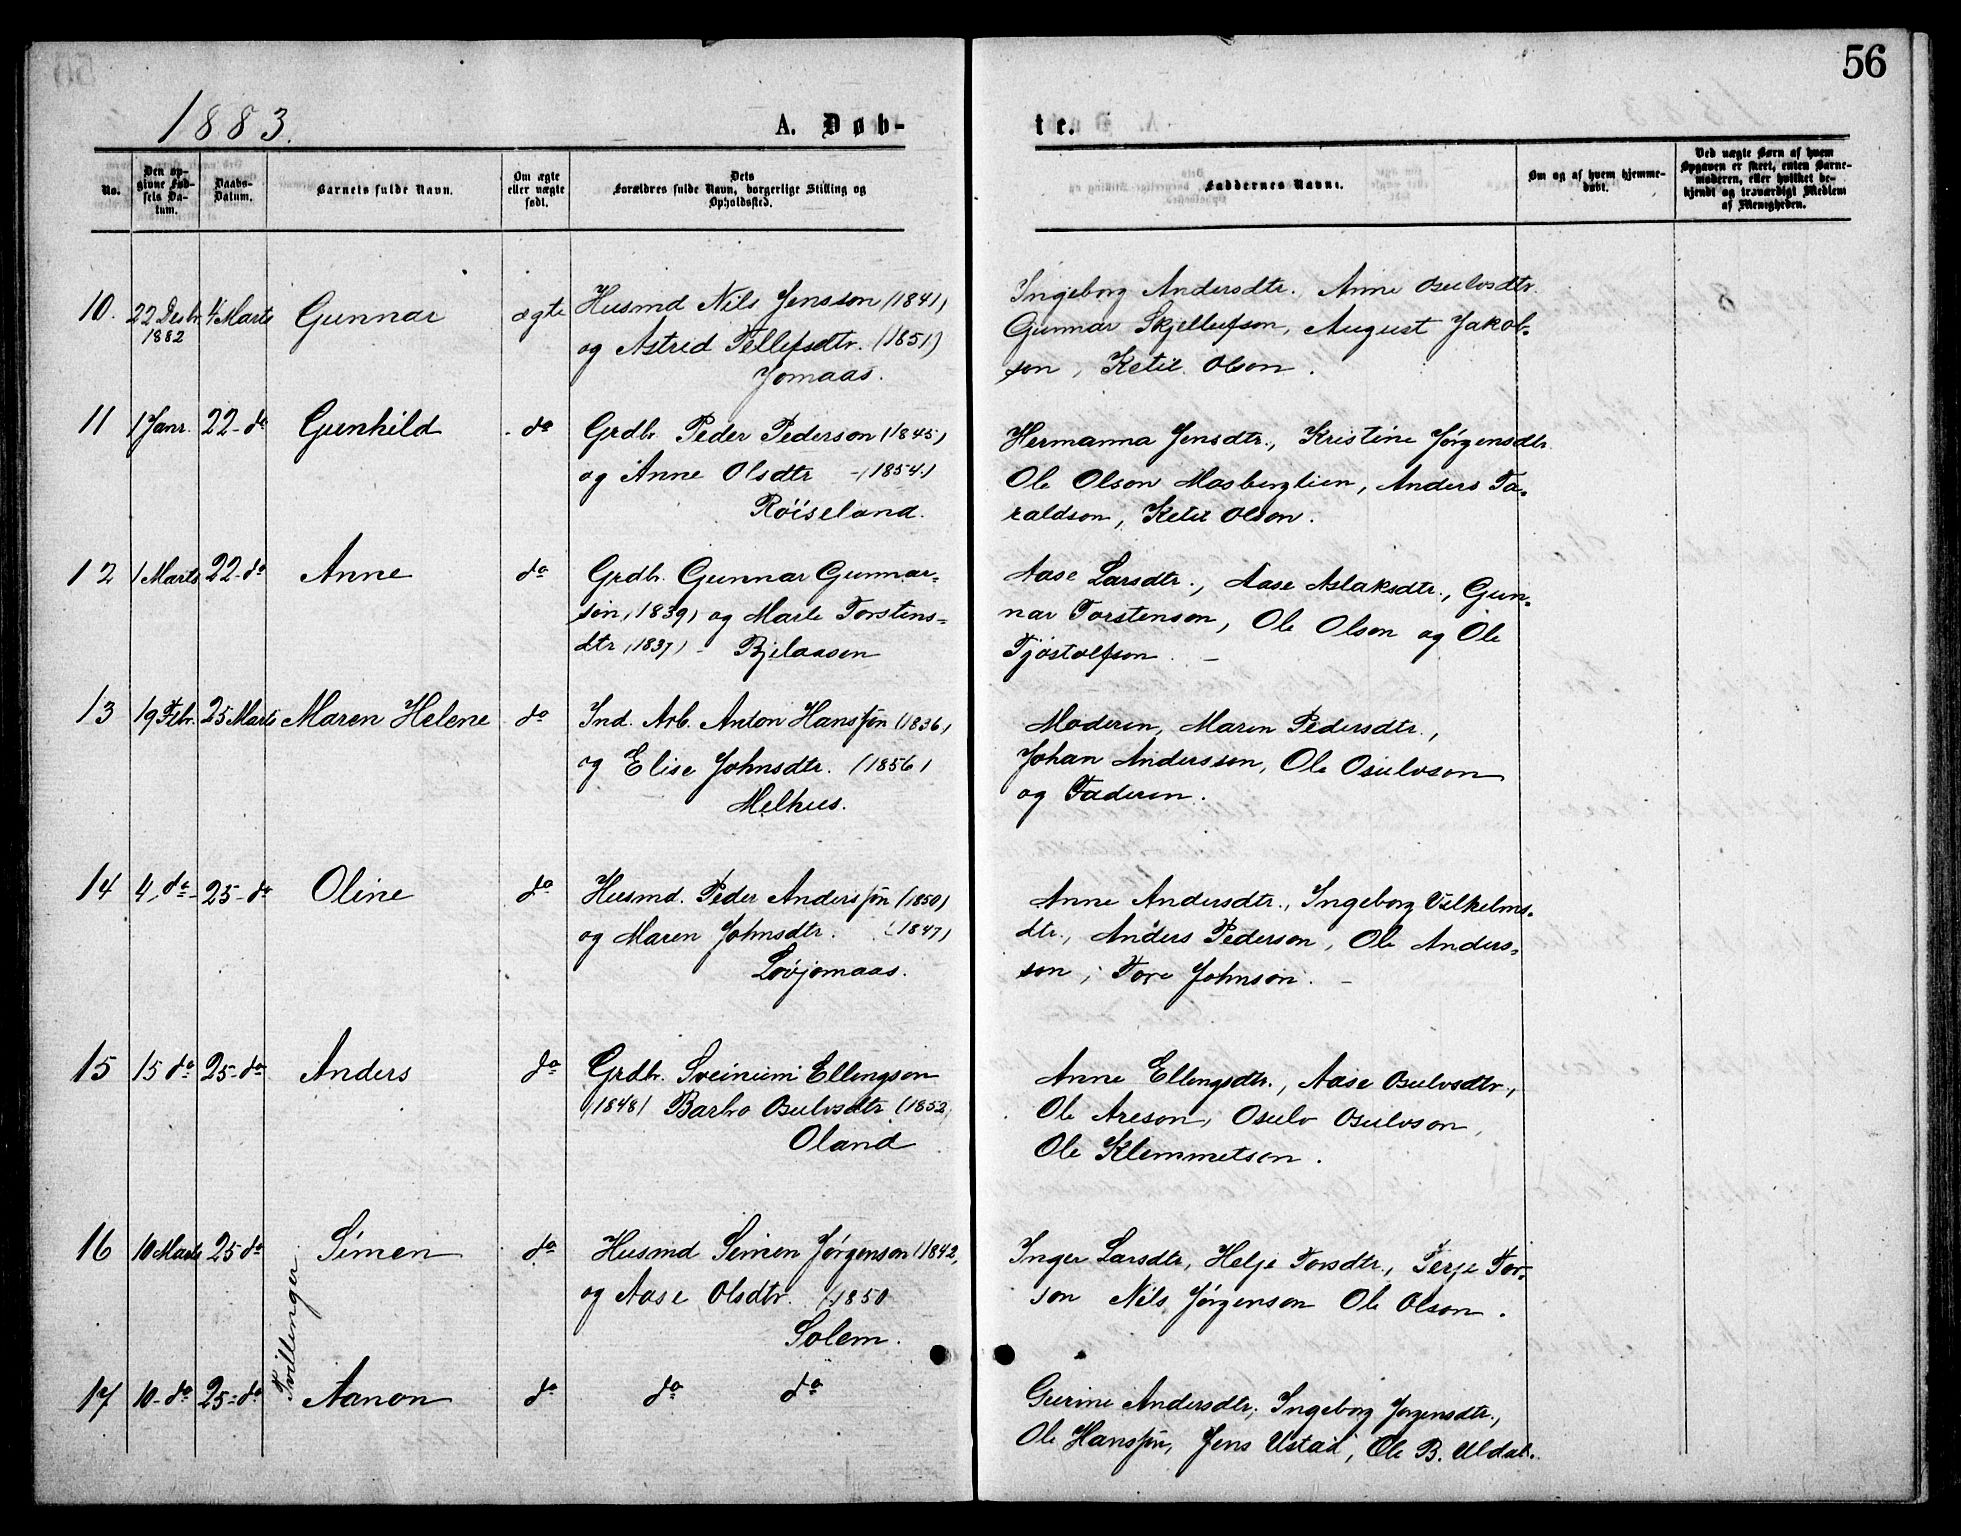 56
1883.
A. Døb-
te.
No.
Den op-
givne Fød-
sels Da-
tum.
Daabs-
Datum.
Barnets fulde Navn.
Om ægte
eller uægte
født.
Dets
Forældres fulde Navn, borgerlige Stilling og
Opholdssted.
Faddernes Navne.
Om og af hvem hjemme-
døbt.
Ved uægte Børn af hvem
Opgaven er skeet, enten Barne-
moderen, eller hvilket be-
kjendt og troværdigt Medlem
af Menigheden.
10. 22 Decbr. 4 Marts Gunnar ægte Husmd Nils Jensson (1841)
1882
og Astrid Tellefsdtr. (1851)
Jomaas.
Ingeborg Andersdtr. Anne Osulvsdtr.
Gunnar Skjellufson, August Jakob-
son, Ketil Olson.
11 1 Janr. 22 - do Gunhild do Grdbr. Peder Pederson (1845)
og Anne Olsdtr - (1854)
Röiseland.
Hermanna Jensdtr., Kristine Jørgensdtr
Ole Olson Mosberglien, Anders Ta-
raldson, Ketil Olson.
12 1 Marts 22 - do Anne do Grdbr. Gunnar Gunnar-
son (1839) og Marte Torstens-
dtr (1837) - Bjelaasen
Aase Larsdtr., Aase Aslaksdtr., Gun-
nar Torstenson, Ole Olson og Ole
Tjöstolfson. -
13 19 Febr. 25 Marts Maren Helene do Ind. Arb. Anton Hanssøn (1836)
og Elise Johnsdtr. (1856)
Melhus.
Moderen, Maren Pedersdtr.,
Johan Andersson, Ole Osulvson
og Faderen.
14 4. do 25 - do Oline do Husmd. Peder Anderssøn (1850)
og Maren Johnsdtr. (1847)
Lovjomaas.
Anne Andersdtr., Ingeborg Vilhelms-
dtr., Anders Pederson, Ole Anders-
son, Tore Johnson. -
15 15 do 25 - do Anders do Grdbr. Sveinum Ellingson
(1848) Barbro Osulvsdtr (1852)
Oland
Anne Ellingsdtr., Aase Osulvsdtr.,
Ole Areson, Osulv Osulvson,
Ole Klemmetson.
16 10 Marts 25 do Simen do Husmd Simen Jørgenson (1842,
og Aase Olsdtr. (1850
Solem.
Inger Larsdtr, Helje Torsdtr., Terje Tor-
son Nils Jørgenson Ole Olson.
Tvillinger
17 10 - do 25 - do Aanon do do do
Gurine Andersdtr, Ingeborg Jørgensdtr.,
Ole Hanssøn, Jens Ustad, Ole B. Uldal.